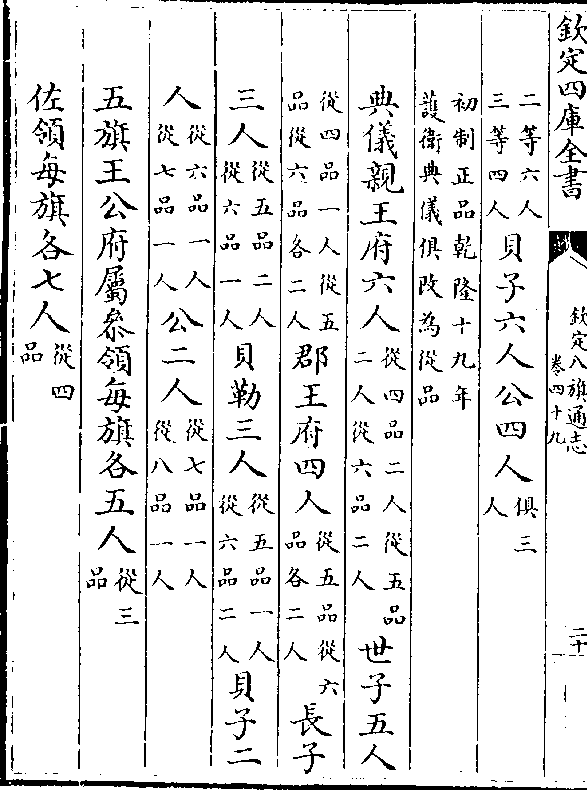 欽定四庫全書
欽定八旗通志
卷四十九
二十
二等六人
三等四人
貝子六人公四人
俱三
人
初制正品乾隆十九年
護衛典儀俱改為從品
典儀親王府六人
從四品二人從五品
二人從六品二人
世子五人
從四品一人從五
品從六品各二人
郡王府四人
從五品從六
品各二人
長子
三人
從五品二人
從六品一人
貝勒三人
從五品一人
從六品二人
貝子二
人
從六品一人
從七品一人
公二人
從七品一人
從八品一人
五旗王公府屬叅領每旗各五人
從三
品
佐領每旗各七人
從四
品